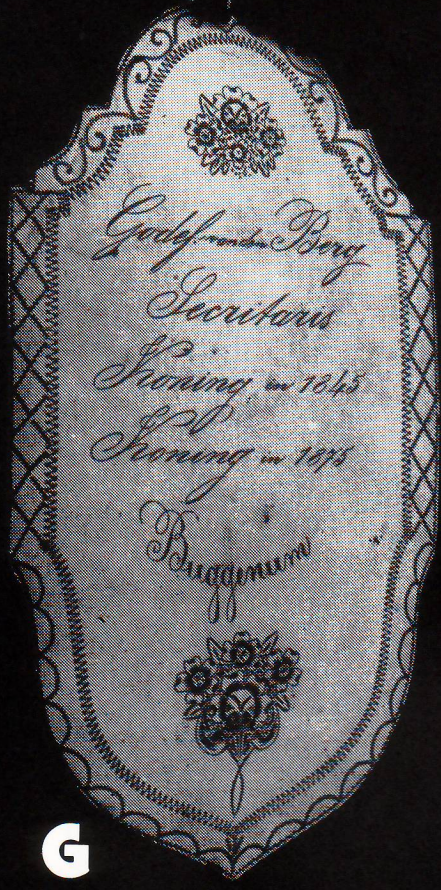 Godef. van den Berg
Secretaris
Koning in 1845
Koning in 1875
Buggenum
G